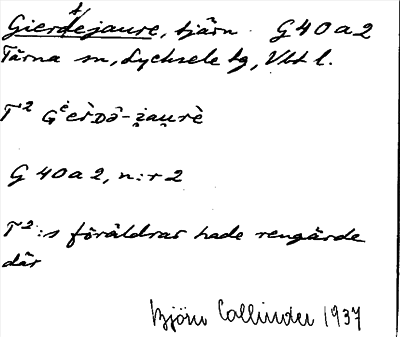 Gierdejaure, tjärn G 40 a 2
Tärna sn, Lycksele lg, Vbt l.
T² Gèèrdô-jaurè
G 40 a 2, n:r 2
T²:s föräldrar hade rengärde
där
Björn Collinder 1937